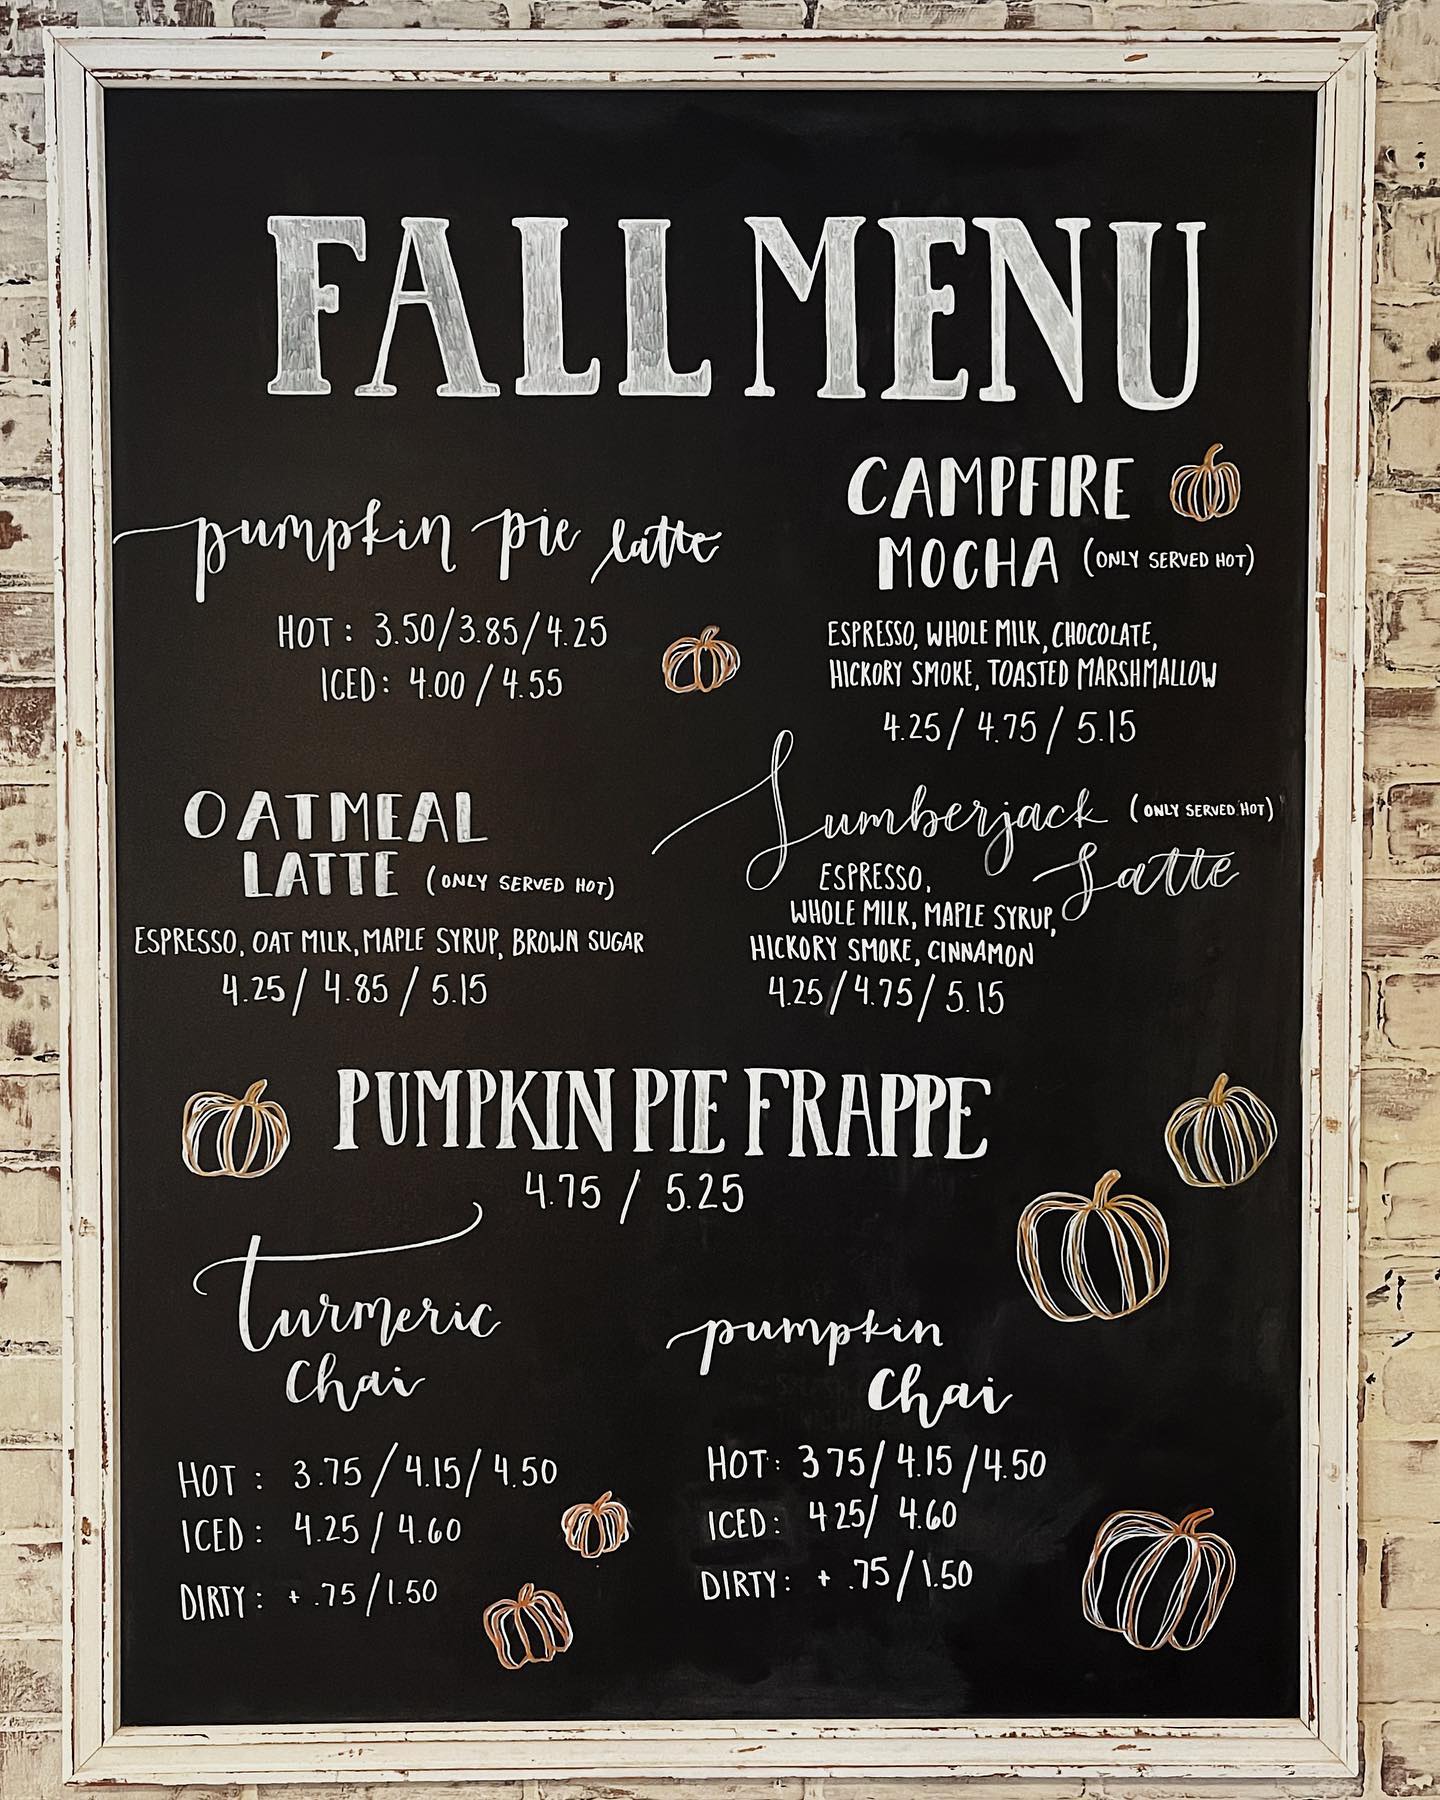 FALL MENU
pumpkin pie latte
HOT: 3.50/3.85/4.25
ICED: 4.00/4.55
CAMPFIRE
MOCHA (ONLY SERVED HOT)
ESPRESSO, WHOLE MILK, CHOCOLATE,
HICKORY SMOKE, TOASTED MARSHMALLOW
4.25/ 4.75/ 5.15
OATMEAL
LATTE (ONLY SERVED HOT)
ESPRESSO, OAT MILK, MAPLE SYRUP, BROWN SUGAR
4.25/ 4.85 / 5.15
Lumberjack (ONLY SERVED HOT)
Latte
ESPRESSO,
WHOLE MILK, MAPLE SYRUP,
HICKORY SMOKE, CINNAMON
4.25/4.75/5.15
PUMPKIN PIE FRAPPE
4.75 / 5.25
turmeric
chai
HOT : 3.75/4.15/4.50
ICED: 4.25/4.60
DIRTY: + .75/1.50
pumpkin
chai
HOT: 3.75/4.15/4.50
ICED: 4.25/ 4.60
DIRTY: + .75/1.50